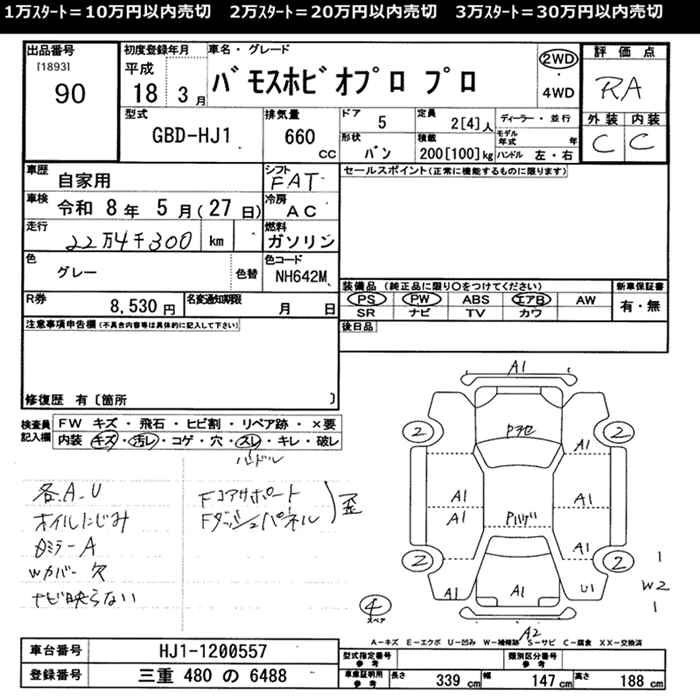 1万スタート＝10万円以内売切　2万スタート＝20万円以内売切　3万スタート＝30万円以内売切
出品番号 初度登録年月 車名・グレード 評価点
[1893] 平成 バモスホビオプロ プロ 2WD RA
90 18 3月 ・4WD
型式 排気量 ドア 5 定員 2[4]人 ディーラー・並行 外装 内装
GBD-HJ1 660 cc 形状 バン 積載 200[100]kg モデル年式 年 ハンドル 左・右 C C
車歴 自家用 シフト FAT セールスポイント(正常に機能するものに限ります)
車検 令和 8年 5月(27日) 冷房 AC
走行 22万4千300 km 燃料 ガソリン
色 グレー 色替 色コード NH642M 装備品（純正品に限り○をつけてください） 新車保証書
PS PW ABS エアB AW 有・無
R券 8,530円 名変通知期限 月 日 SR ナビ TV カワ
注意事項申告欄(不具合内容等は具体的に記入して下さい) 後日品
修復歴 有〔箇所 〕
検査員記入欄 FW キズ・飛石・ヒビ割・リペア跡・×要
内装 キズ・汚レ・コゲ・穴・スレ・キレ・破レ
ハンドル
各A.U Fコアサポート
オイルにじみ Fダッシュパネル 歪
ミラーA
Wカバー欠
ナビ映らない
A1
2 Pアセ 2
A1
A1 A1
A1
A1
2 2
A1 A1 U1
1
W2
1
4
スペア
A2
A－キズ E－エクボ U－凹み W－補修跡 S－サビ C－腐食 XX－交換済
車台番号 HJ1-1200557 型式指定番号 参考 類別区分番号 参考
登録番号 三重 480 の 6488 車庫証明用 参考 長さ 339 cm 幅 147 cm 高さ 188 cm